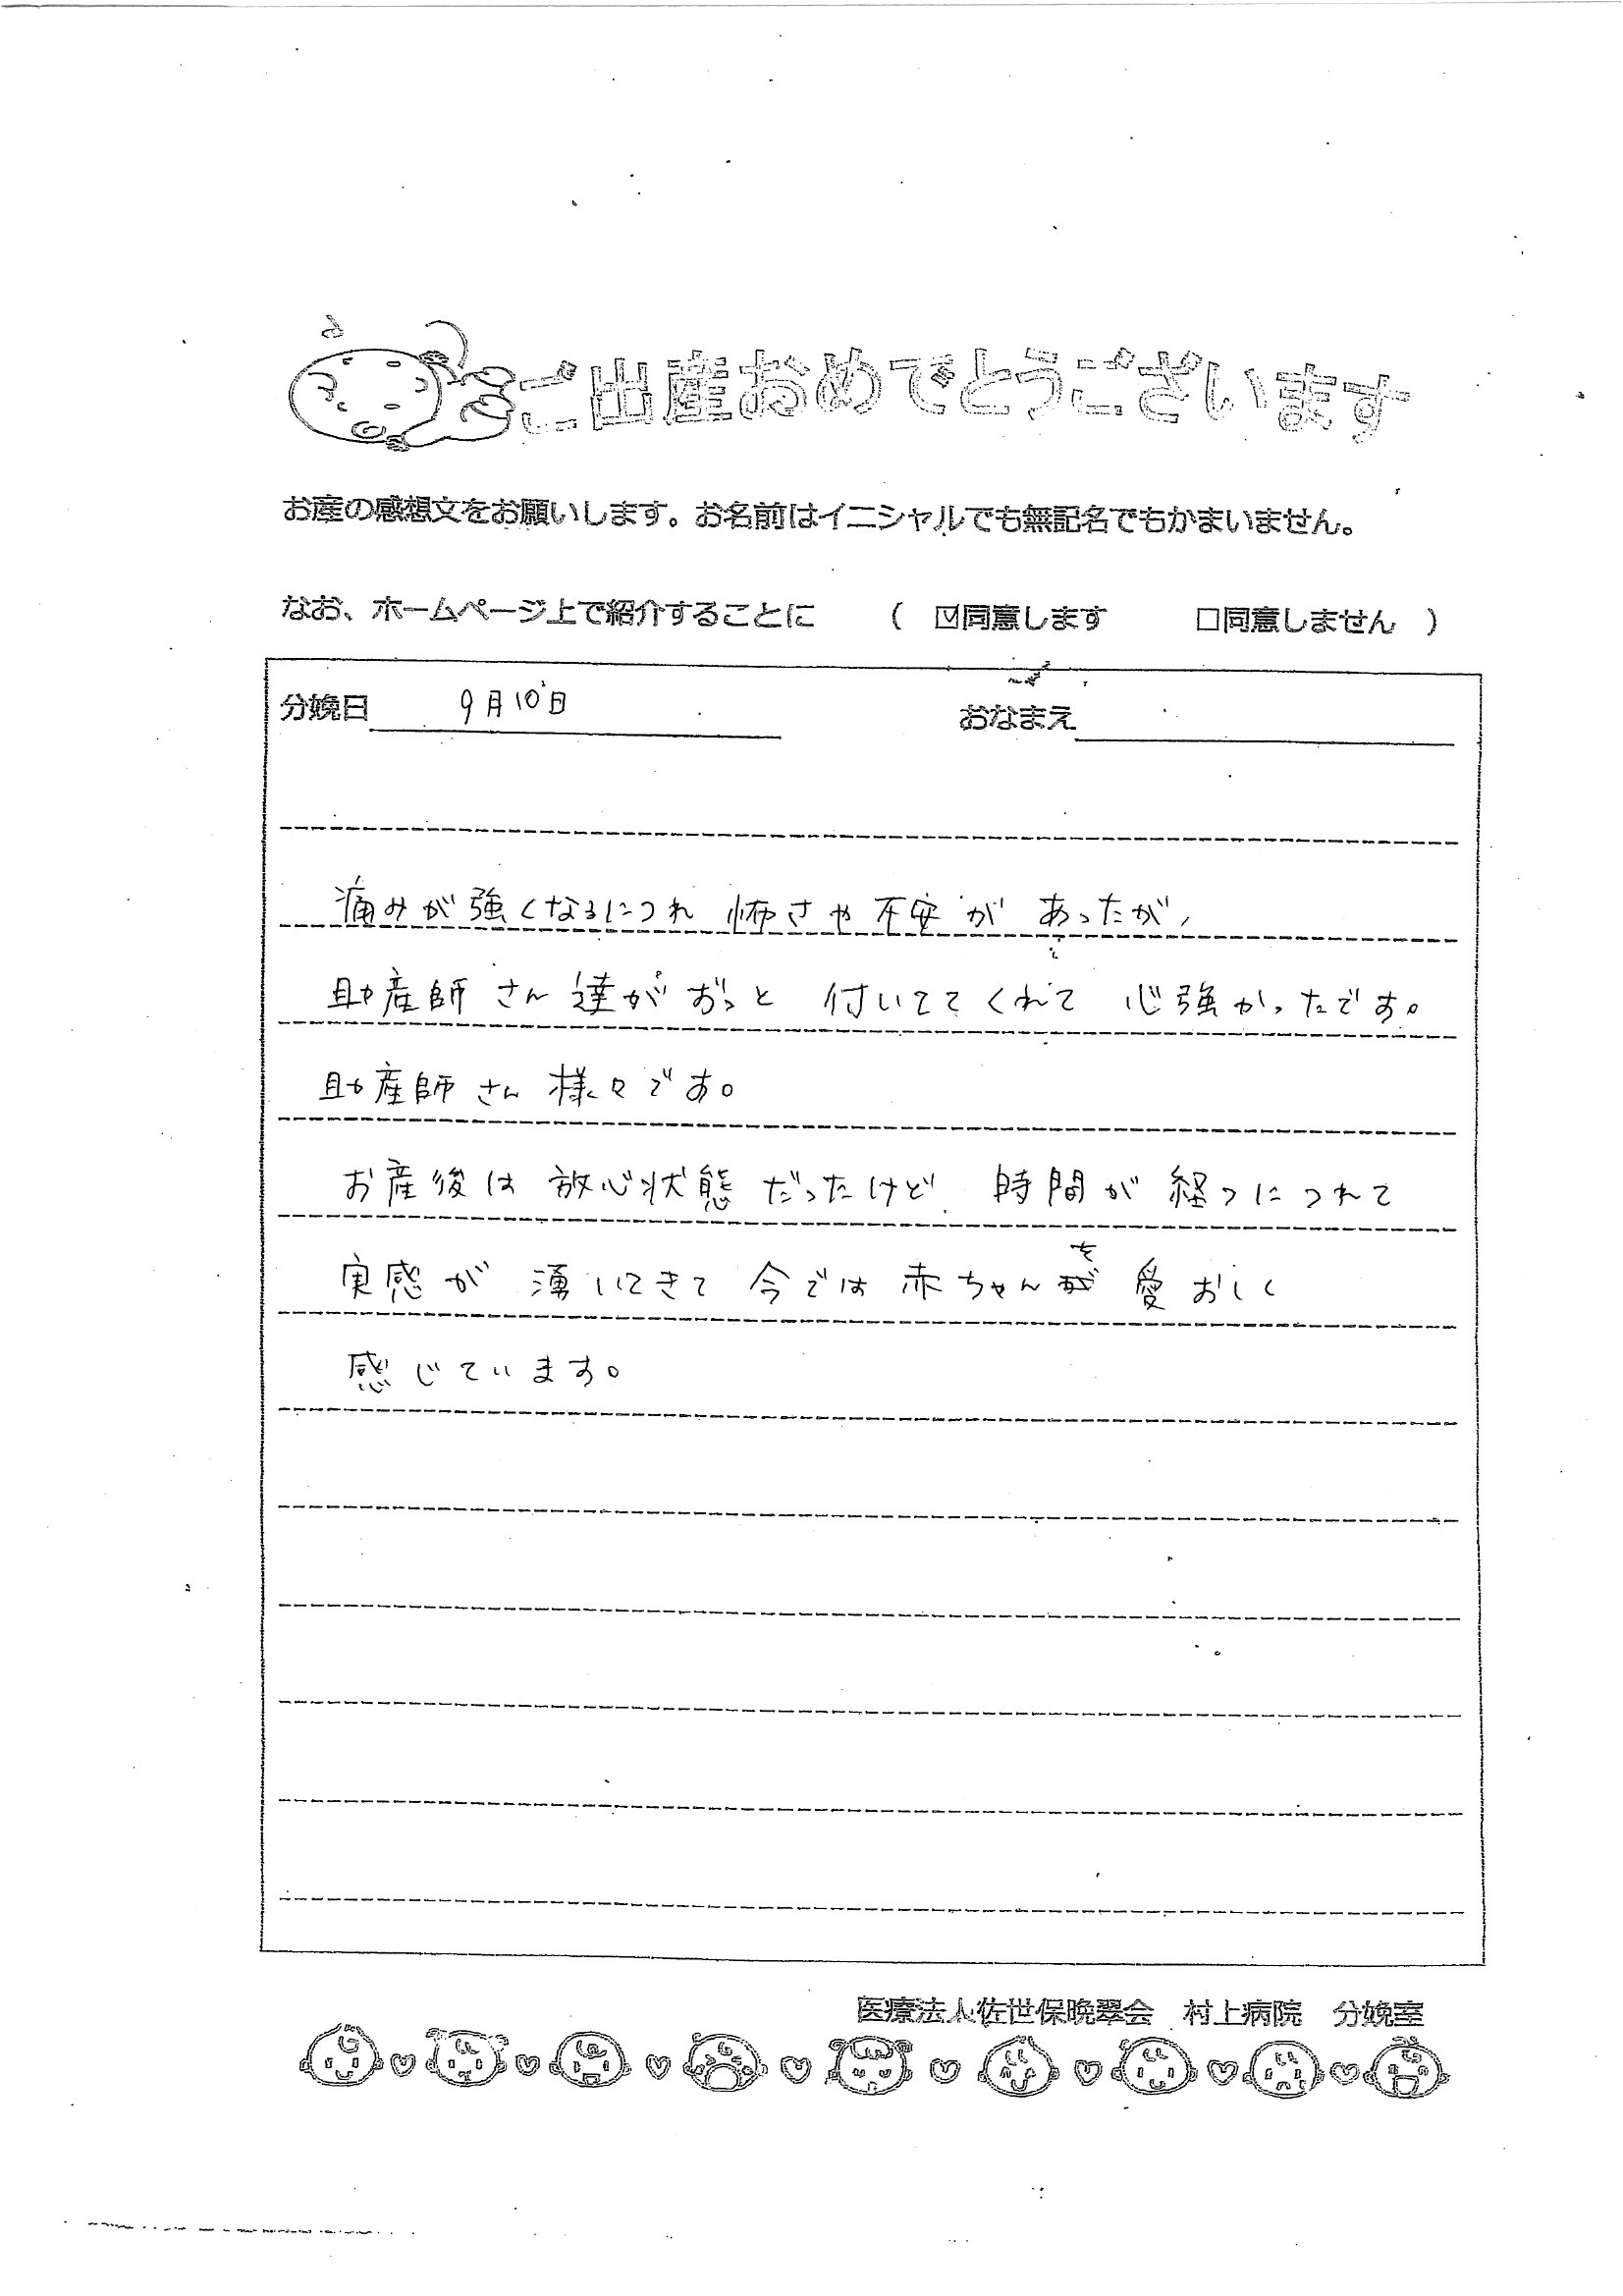 ご出産おめでとうございます
お産の感想文をお願いします。お名前はイニシャルでも無記名でもかまいません。
なお、ホームページ上で紹介することに （ ☑同意します □同意しません ）
分娩日 9月10日 おなまえ
痛みが強くなるにつれ 怖さや不安が あったが、
助産師さん達がずっと 付いててくれて 心強かったです。
助産師さん様々です。
お産後は放心状態だったけど 時間が経つにつれて
実感が 湧いてきて 今では赤ちゃんを 愛おしく
感じています。
医療法人佐世保晩翠会 村上病院 分娩室